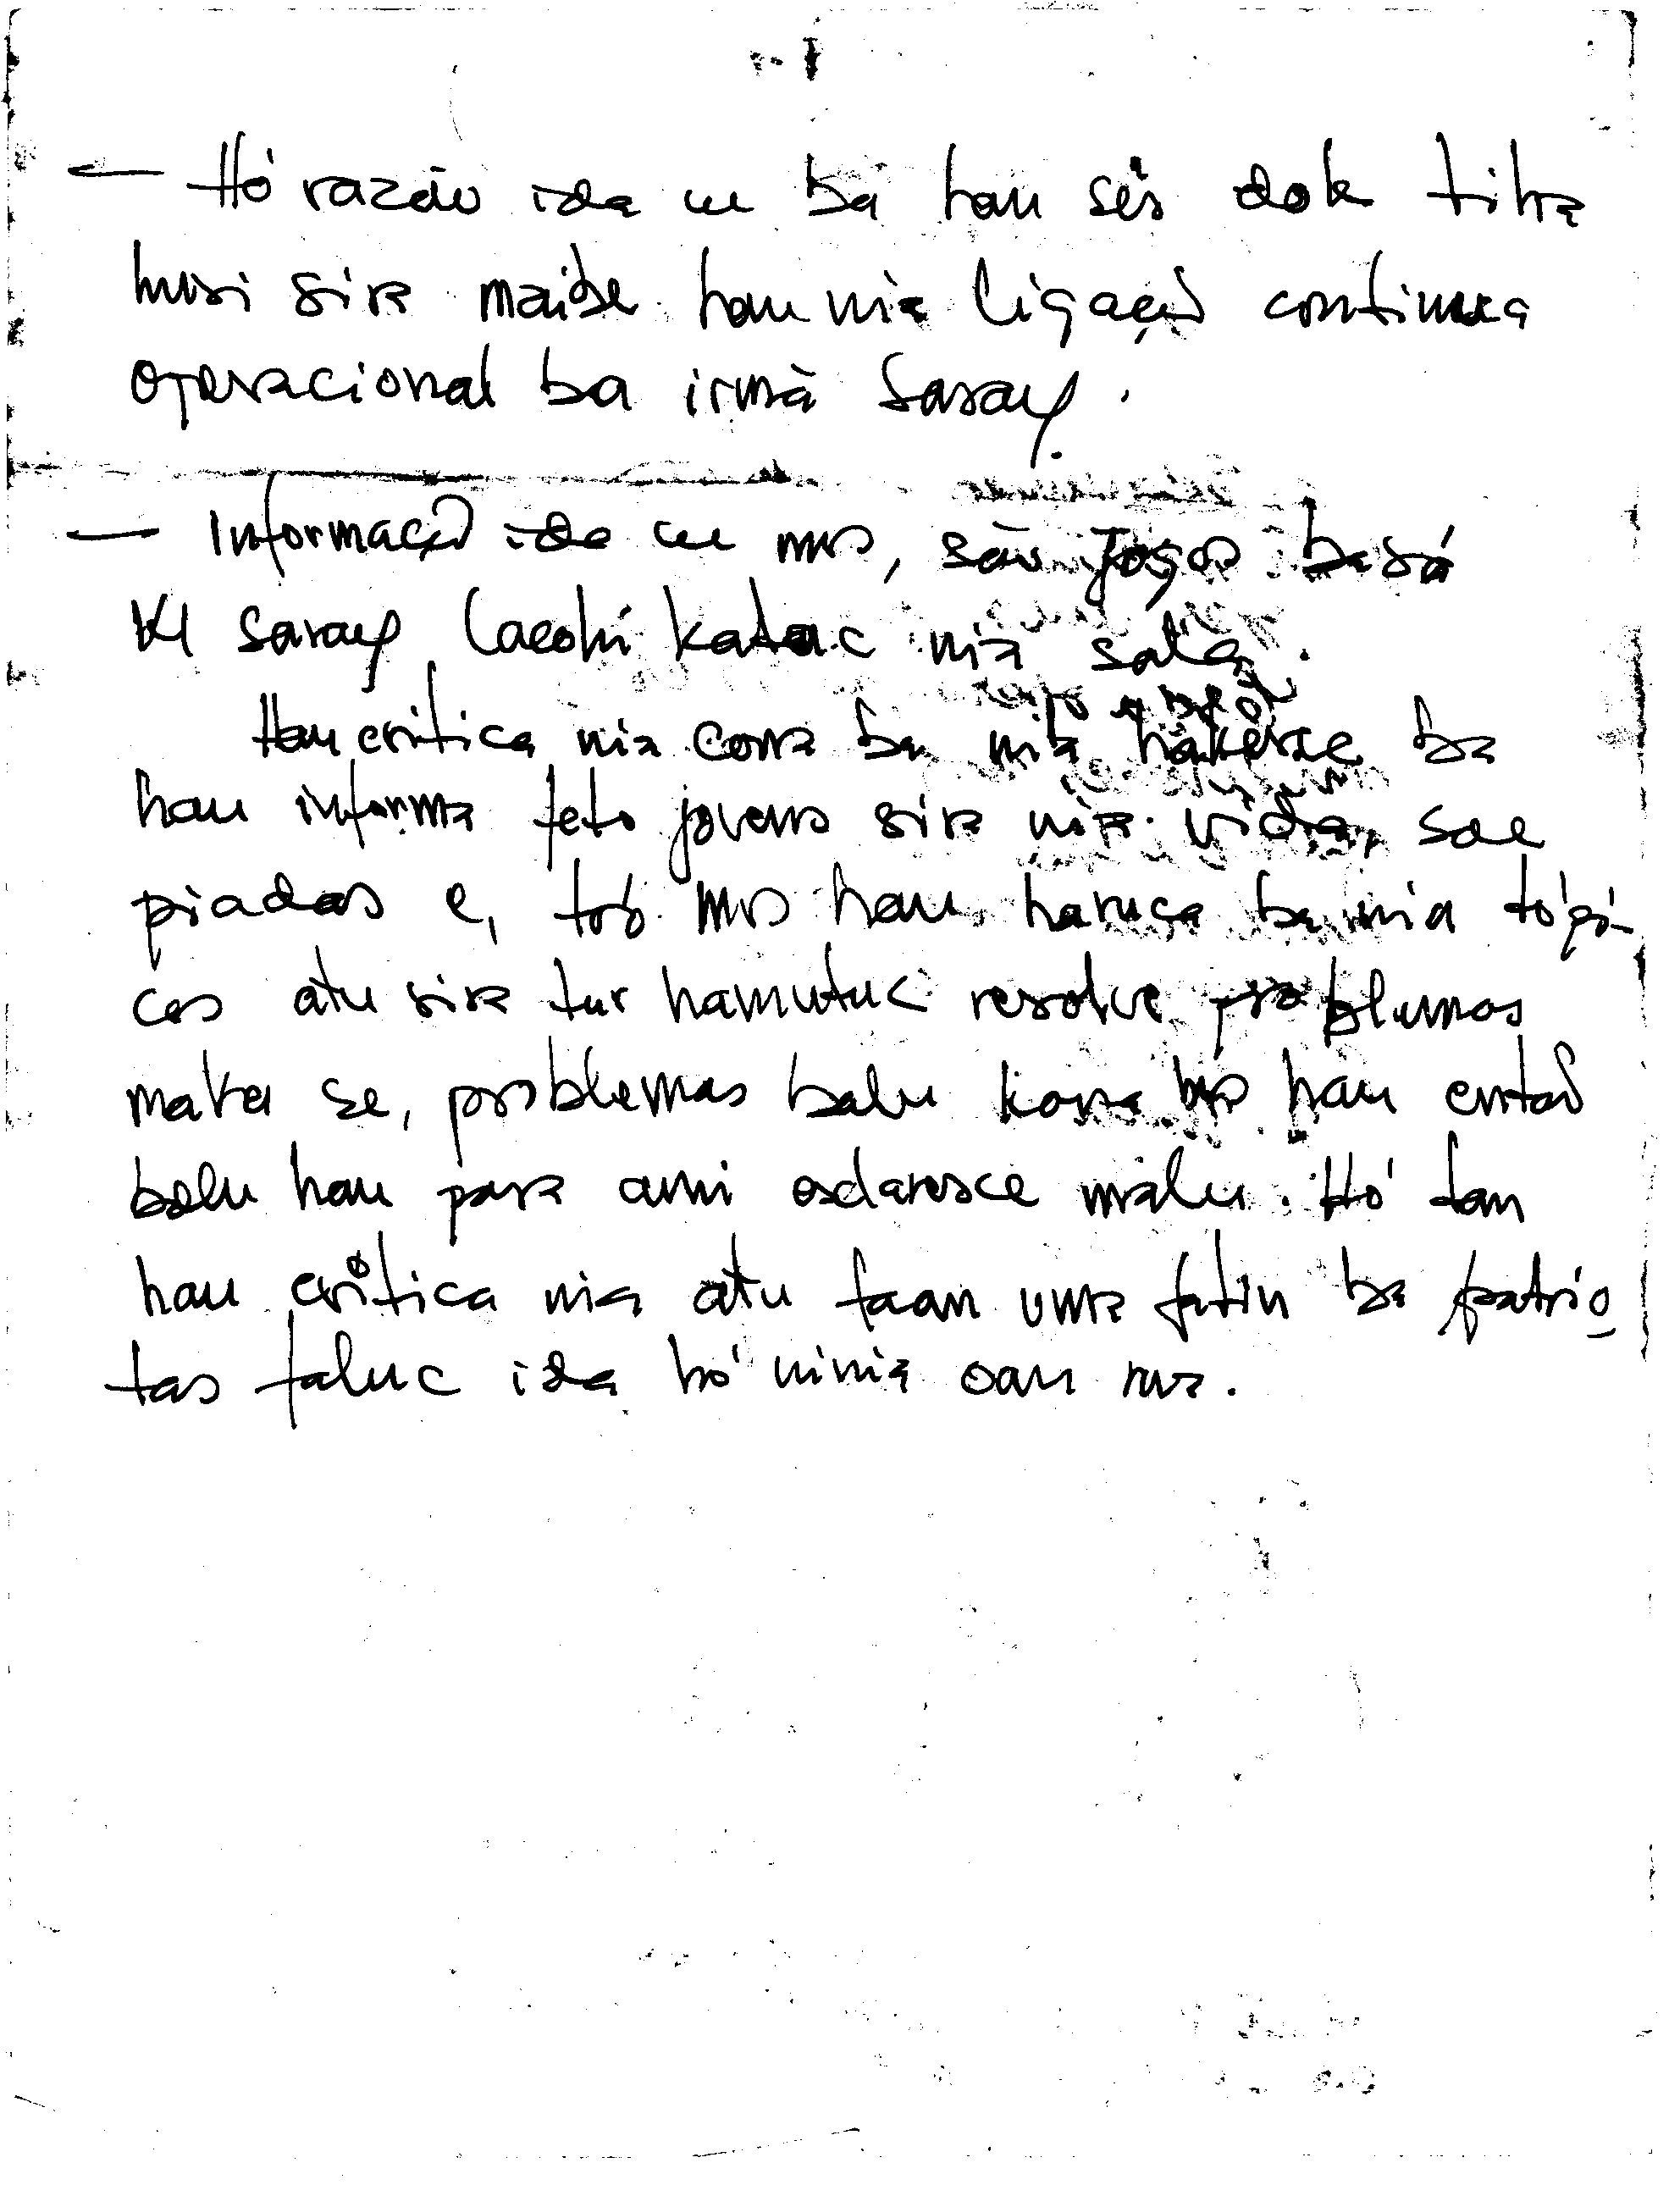 — Hó razão ida ne ba hau sés dok tiha
husi sira maibe hau nia ligação continua
operacional ba irmã Saray.
— Informação ida ne mos, são jogos basá
KI Saray lacohi katac nia sala.
Hau critica nia cona ba nia hakerec ba
hau informa feto jovens sira nia vida, sae
piadas e, too mos hau haruca ba nia tópi-
cos atu sira tur hamutuc resolve problemas
maka se, problemas balu kona hau entao
bolu hau para ami esclaresce malu. Hó tan
hau critica nia atu faan uma fatin ba patrio
tas faluc ida hó ninia oan rua.